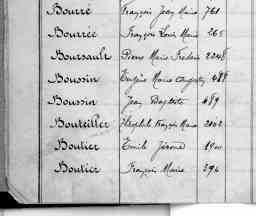 Bourré François Jean Marie 761
Bourrée François Louis Marie 265
Boursault Pierre Marie Frédéric 2248
Boussin Eugène Marie Auguste 488
Boussin Jean Baptiste 489
Bouteiller François Marie 2002
Boutier Emile Jérome
Boutier François Marie 296